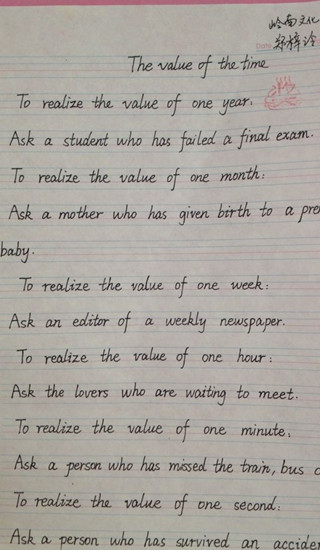 岭南文化
郑梓泠
Date
The value of the time
To realize the value of one year:
Ask a student who has failed a final exam.
To realize the value of one month:
Ask a mother who has given birth to a pre
baby.
To realize the value of one week:
Ask an editor of a weekly newspaper.
To realize the value of one hour:
Ask the lovers who are waiting to meet.
To realize the value of one minute:
Ask a person who has missed the train, bus o
To realize the value of one second:
Ask a person who has survived an acciden